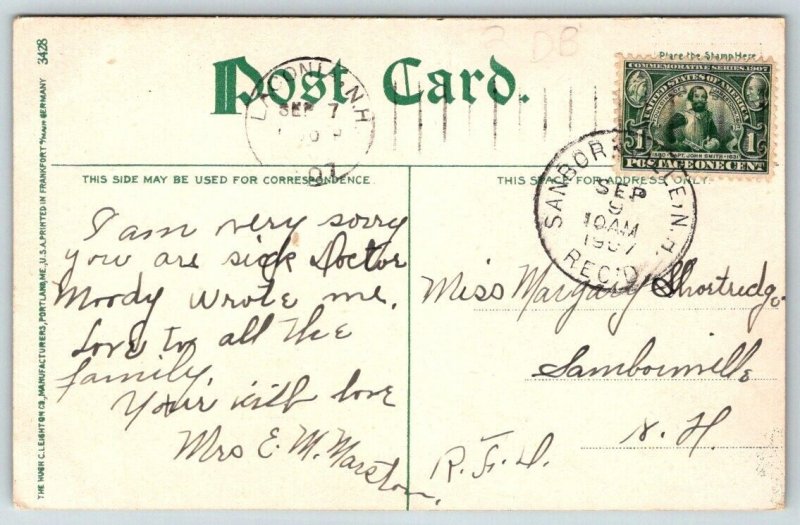 3428
3 DB
Place the Stamp Here
Post Card.
LACONIA, N.H.
SEP 7
07
COMMEMORATIVE SERIES 1907
UNITED STATES OF AMERICA
1580 CAPT. JOHN SMITH 1631
1 POSTAGE ONE CENT 1
SANBORNVILLE, N.H.
SEP
9
10 AM
1907
REC'D.
THIS SIDE MAY BE USED FOR CORRESPONDENCE
THIS SPACE FOR ADDRESS ONLY.
I am very sorry
you are sick Doctor
Moody wrote me.
Love to all the
family.
Your with love
Mrs E. M. Marston.
Miss Margary Shortridge
Sambornville
N. H.
R. F. D.
THE HUGH C. LEIGHTON CO., MANUFACTURERS, PORTLAND, ME., U.S.A. PRINTED IN FRANKFORT a/MAIN GERMANY